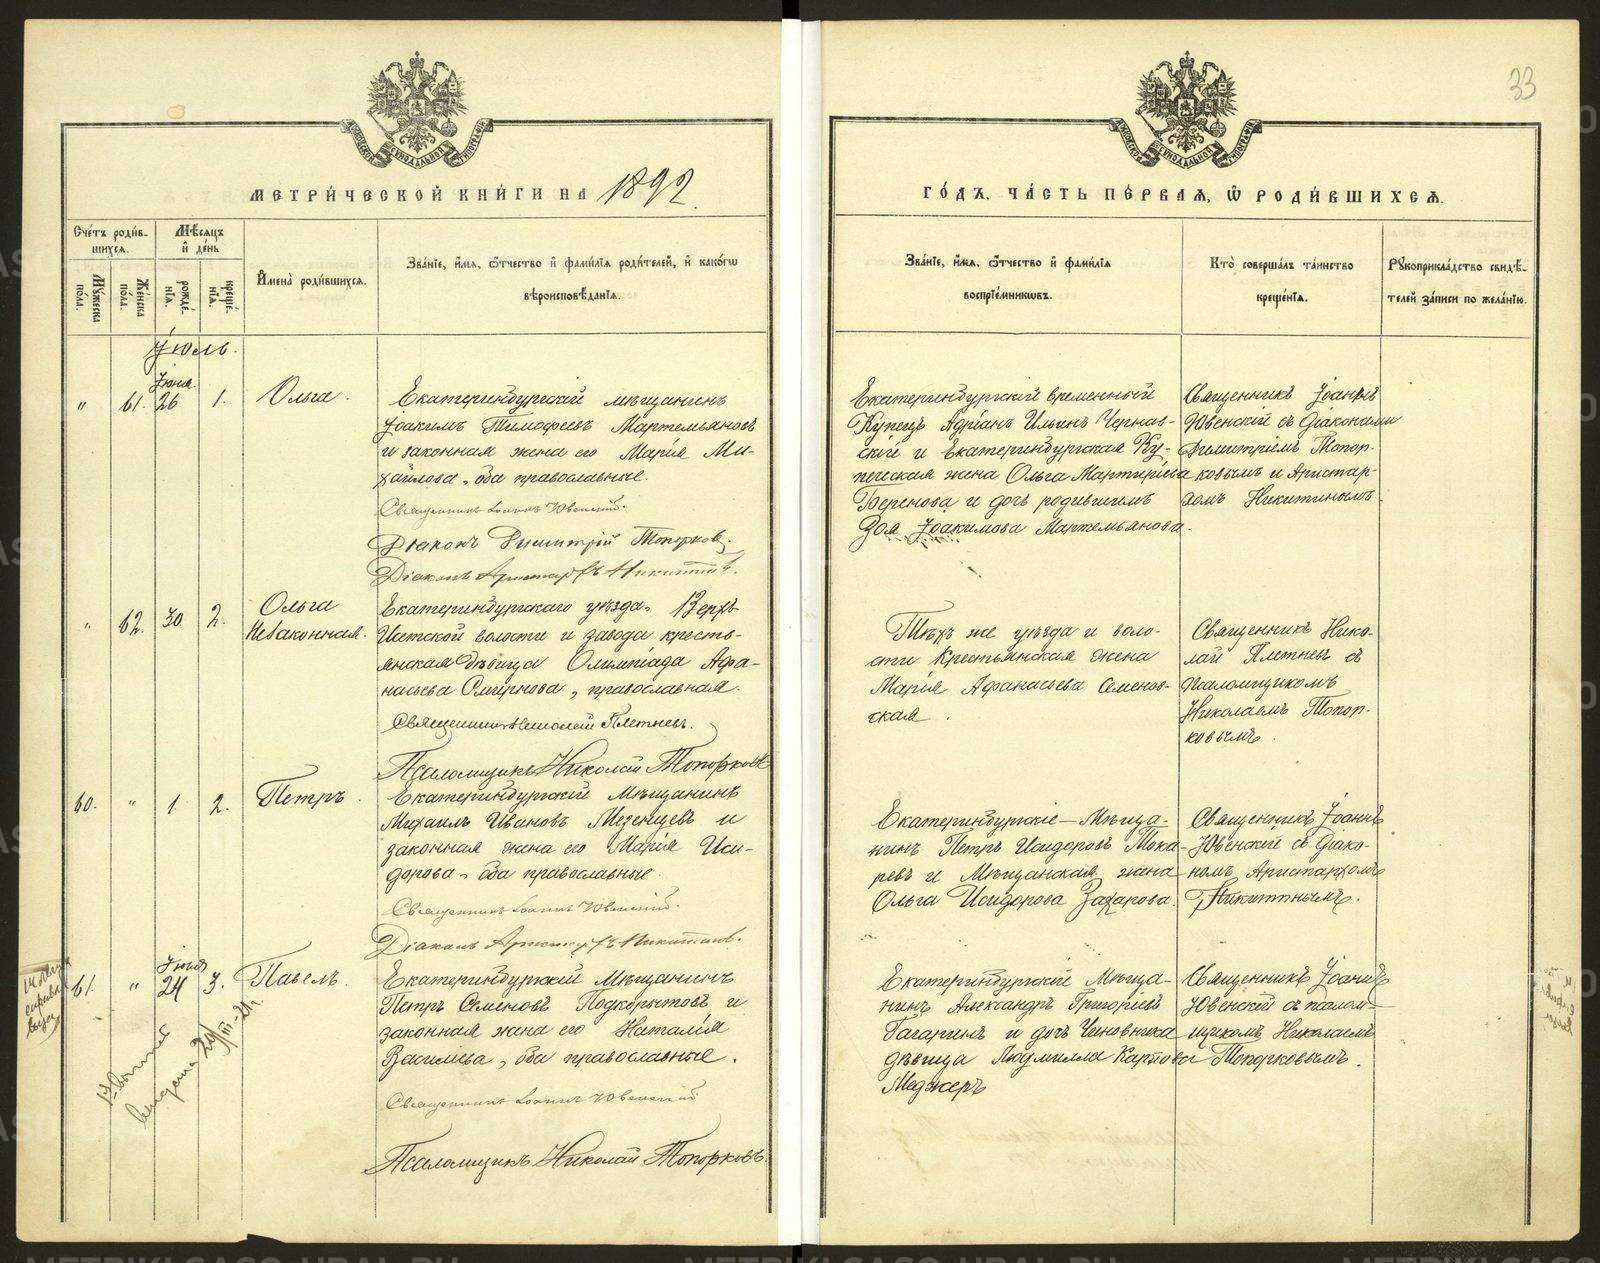 33
МЕТРИ́ЧЕСКОЙ КНИ́ГИ НА 1892
ГО́ДЪ, ЧА́СТЬ ПЕ́РВАѦ, Ѡ҆ РОДИ́ВШИХСѦ.
Сче́тъ роди́в-
шихсѧ.
Мѣ́сѧцъ
и҆ де́нь
Мꙋ́жеска
по́ла.
Же́нска
по́ла.
рожде́-
нїѧ.
креще́-
нїѧ.
И҆мена̀ роди́вшихсѧ.
Зва́нїе, и҆́мѧ, ѻ҆́тчество и҆ фами́лїѧ роди́телей, и҆ како́гѡ
вѣроисповѣ́данїѧ.
Зва́нїе, и҆́мѧ, ѻ҆́тчество и҆ фами́лїѧ
воспрїе́мникѡвъ.
Кто̀ соверша́лъ та́инство
креще́нїѧ.
Рꙋкоприкла́дство свидѣ́-
телей за́писи по жела́нїю.
Іюль.
Іюня
" 61. 26 1. Ольга.
Екатеринбургскій мѣщанинъ
Іоакимъ Тимофеевъ Мартемьяновъ
и законная жена его Марія Ми-
хайлова, оба православные.
Священникъ Іоаннъ Ювенскій.
Діаконъ Димитрій Топорковъ.
Діаконъ Аристархъ Никитинъ.
Екатеринбургскій временный
Купецъ Адріанъ Ильинъ Чернав-
скій и Екатеринбургская Ку-
печеская жена Ольга Мартирiева
Беренова и дочь родившимъ
Зоя Іоакимова Мартемьянова.
Священникъ Іоаннъ
Ювенскій съ Діаконами
Димитріемъ Топор-
ковымъ и Аристар-
хомъ Никитинымъ.
" 62. 30 2. Ольга
Незаконная.
Екатеринбургскаго уѣзда, Верхъ-
Исетской волости и завода кресть-
янская дѣвица Олимпіада Афа-
насьева Смирнова, православная.
Священникъ Николай Плетневъ.
Псаломщикъ Николай Топорковъ
Тѣхъ же уѣзда и воло-
сти Крестьянская жена
Марія Афанасьева Семенов-
ская.
Священникъ Нико-
лай Плетневъ съ
Псаломщикомъ
Николаемъ Топор-
ковымъ.
60. " 1. 2. Петръ.
Екатеринбургскій Мѣщанинъ
Михаилъ Ивановъ Мезенцевъ и
законная жена его Марія Иси-
дорова, оба православные.
Священникъ Іоаннъ Ювенскій.
Діаконъ Аристархъ Никитинъ.
Екатеринбургскіе — Мѣща-
нинъ Петръ Исидоровъ Тока-
ревъ и Мѣщанская жена
Ольга Исидорова Захарова.
Священникъ Іоаннъ
Ювенскій съ Діако-
номъ Аристархомъ
Никитинымъ.
Іюня
61. " 24 3. Павелъ.
Екатеринбургскій Мѣщанинъ
Петръ Семеновъ Подкорытовъ и
законная жена его Наталія
Васильева, оба православные.
Священникъ Іоаннъ Ювенскій
Псаломщикъ Николай Топорковъ.
Екатеринбургскій Мѣща-
нинъ Александръ Григоріевъ
Гагаринъ и дочь Чиновника
дѣвица Людмилла Карпова
Меджеръ
Священникъ Іоаннъ
Ювенскій съ псалом-
щикомъ Николаемъ
Топорковымъ.